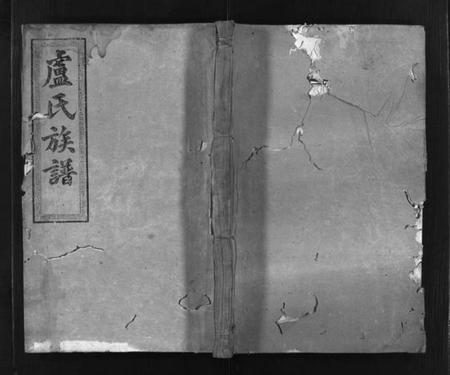 盧氏族譜